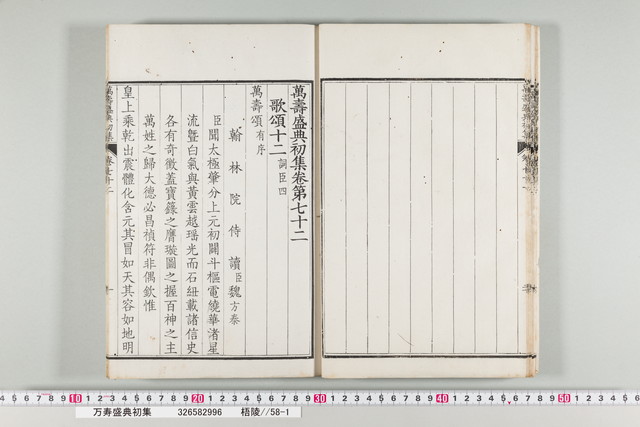 萬壽盛典初集卷第七十二
歌頌十二 詞臣四
萬壽頌 有序
翰林院侍讀臣魏方泰
臣聞太極肇分上元初闢斗樞電繞華渚星
流曁白氣與黃雲越瑶光而石紐載諸信史
各有奇徵蓋寶籙之膺璇圖之握百神之主
萬姓之歸大德必昌禎符非偶欽惟
皇上乘乾出震體化含元其冒如天其容如地明
萬壽盛典初集
10 20 30 40 50
万寿盛典初集 326582996 梧陵//58-1